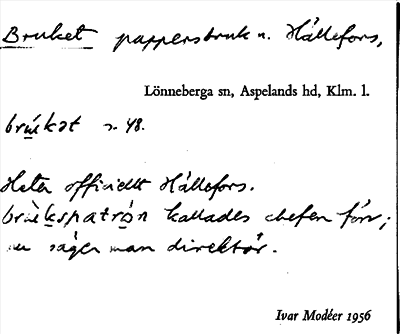 Bruket pappersbruk n. Hällefors,
Lönneberga sn, Aspelands hd, Klm. l.
brùkət s. 48.
Heter officiellt Hällefors.
brùkspatrón kallades chefen förr;
nu säger man direktör.
Ivar Modéer 1956